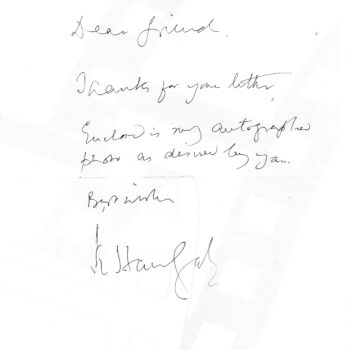 Dear friend.
Thanks for your letter,
Enclosed is my autographed
photo as desired by you.
Best wishes
A K Hangal